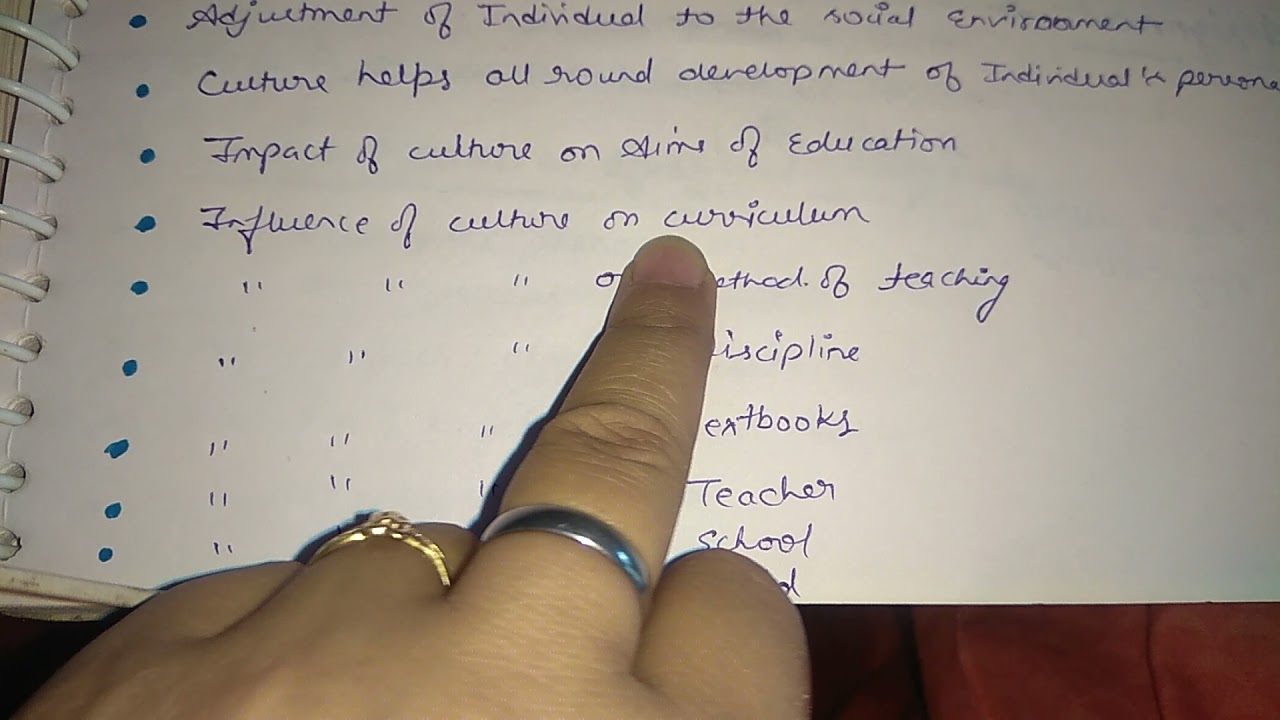 • Adjustment of Individual to the social Environment
• Culture helps all round development of Individual's persona
• Impact of culture on Aims of Education
• Influence of culture on curriculum
• " " " ethod. of teaching
• " " " iscipline
• " " " extbooks
• " " " Teacher
• " School